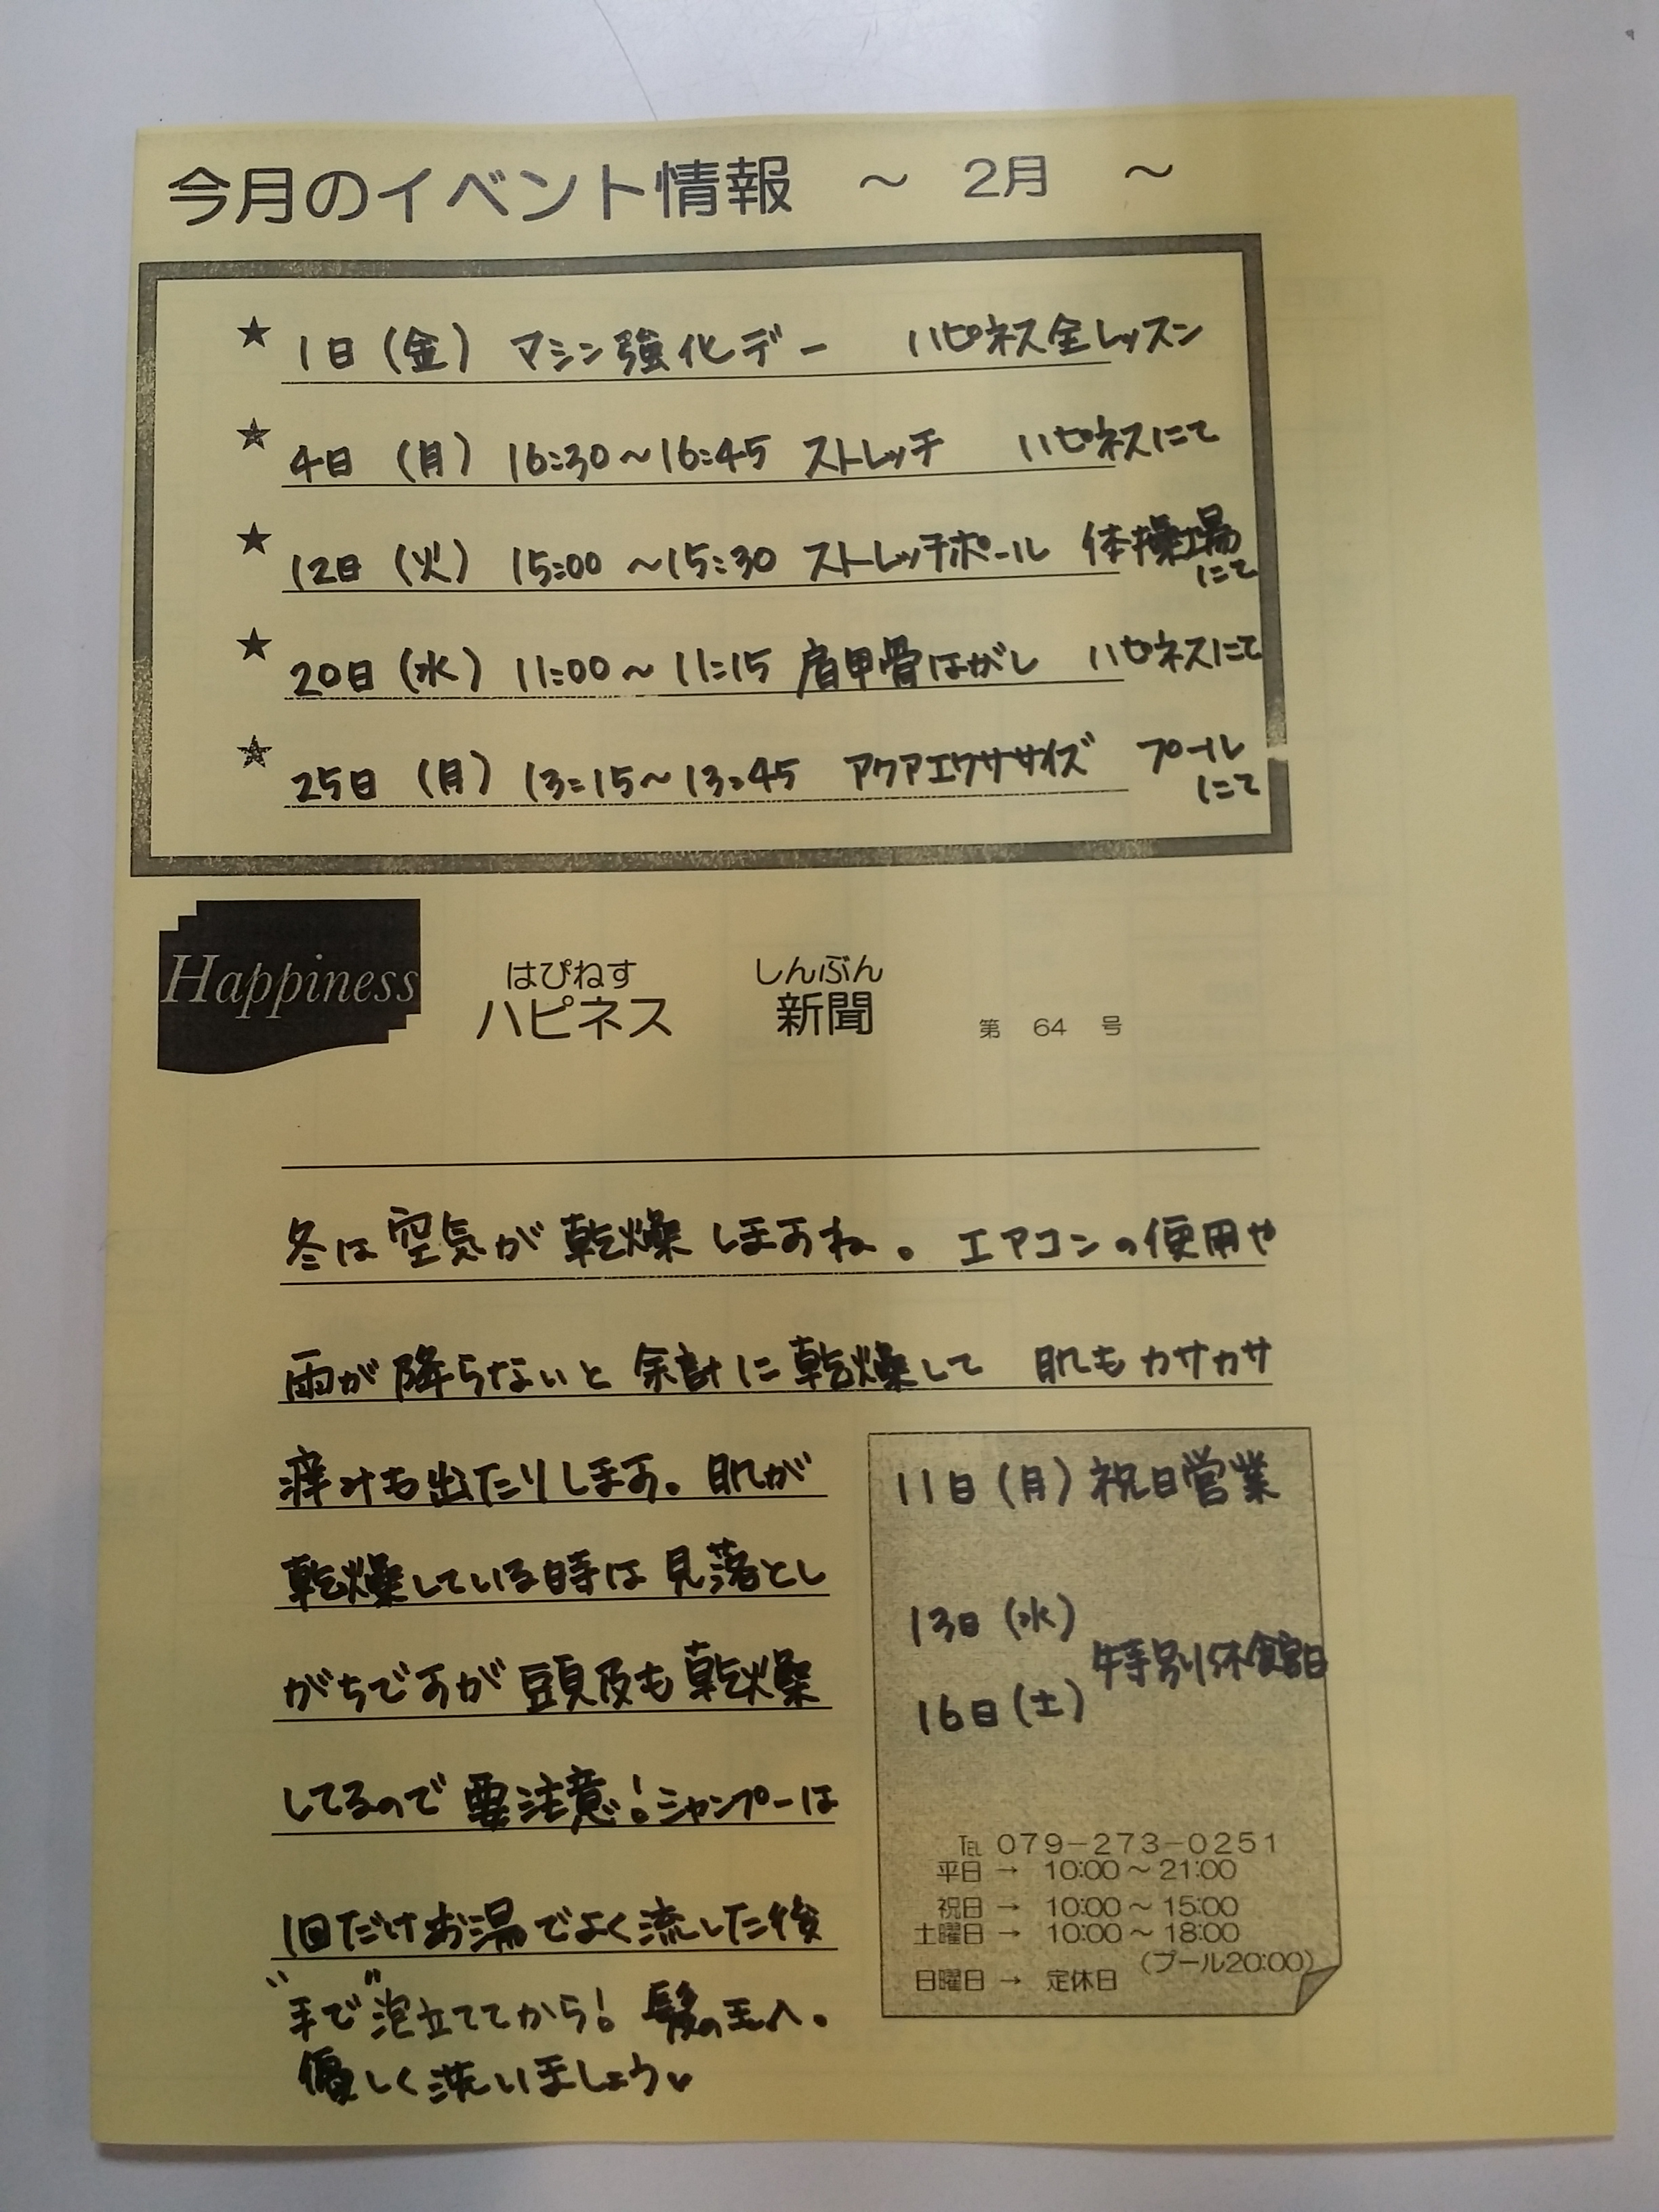 今月のイベント情報 ～ 2月 ～
★ 1日（金） マシン強化デー ハピネス全レッスン
★ 4日（月） 16:30～16:45 ストレッチ ハピネスにて
★ 12日（火） 15:00～15:30 ストレッチポール 体操場にて
★ 20日（水） 11:00～11:15 肩甲骨はがし ハピネスにて
★ 25日（月） 13:15～13:45 アクアエクササイズ プールにて
Happiness
はぴねす しんぶん
ハピネス 新聞 第 64 号
冬は空気が乾燥しますね。エアコンの使用や
雨が降らないと余計に乾燥して 肌もカサカサ
痒みも出たりします。肌が
乾燥している時は見落とし
がちですが頭皮も乾燥
してるので要注意！シャンプーは
1回だけお湯でよく流した後
"手で"泡立ててから！髪の毛へ。
優しく洗いましょう。
11日（月）祝日営業
13日（水）
特別休館日
16日（土）
℡ 079－273－0251
平日 → 10:00～21:00
祝日 → 10:00～15:00
土曜日 → 10:00～18:00
（プール20:00）
日曜日 → 定休日